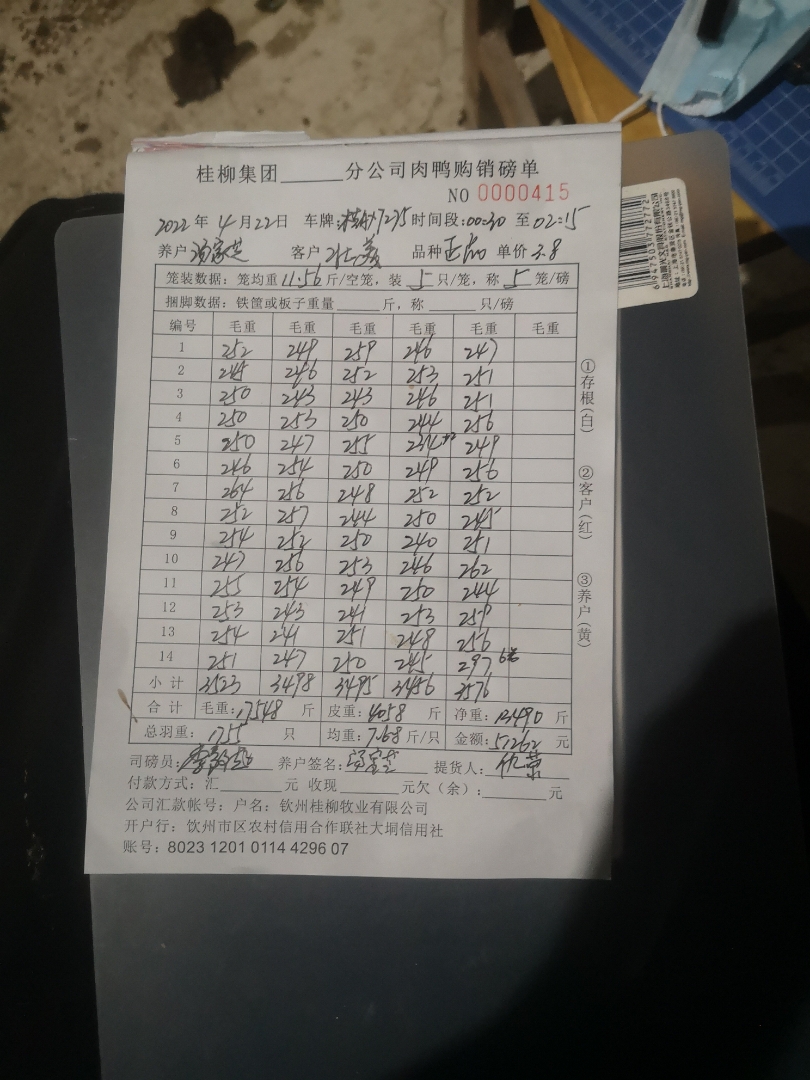 桂柳集团______分公司肉鸭购销磅单
NO 0000415
2022年 4月22日 车牌: 7275 时间段:00:30 至 02:15
养户 客户 品种 正品 单价 3.8
笼装数据: 笼均重 11.56 斤/空笼，装 5 只/笼，称 5 笼/磅
捆脚数据: 铁筐或板子重量______斤，称______只/磅
编号 毛重 毛重 毛重 毛重 毛重 毛重
1 252 249 259 246 247
2 245 246 252 253 251
3 250 243 243 246 251
4 250 253 250 244 256
5 250 247 255 234 249
6 246 254 250 249 256
7 264 256 248 252 252
8 252 257 244 250 245
9 254 252 250 240 251
10 247 256 253 246 262
11 255 254 249 250 244
12 253 243 241 253 259
13 254 241 251 248 256
14 251 247 250 245 297 6笼
小计 3523 3498 3495 3456 3576
合计 毛重: 17548 斤 皮重: 4058 斤 净重: 13490 斤
总羽重: 1755 只 均重: 7.68 斤/只 金额: 51262 元
司磅员: 养户签名: 提货人:
付款方式: 汇______元 收现______元欠（余）:______元
公司汇款帐号: 户名: 钦州桂柳牧业有限公司
开户行: 钦州市区农村信用合作联社大垌信用社
账号: 8023 1201 0114 4296 07
①存根(白)
②客户(红)
③养户(黄)
6947503772772